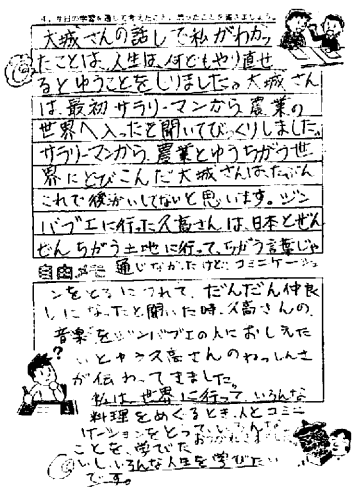 4. 今日の学習を通して考えたこと、思ったことを書きましょう。
大城さんの話しで私がわかっ
たことは、人生は、何どもやり直せ
るとゆうことをしりました。大城さん
は、最初サラリーマンから、農業の
世界へ入ったと聞いてびっくりしました。
サラリーマンから、農業とゆうちがう世
界にとびこんだ大城さんは、たぶん
これで後かいしてないと思います。ジン
バブエに行った久高さんは、日本とぜん
ぜんちがう土地に行って、ちがう言葉じゃ
自由メモ 通じなかったけど、コミニケーショ
ンをとるにつれて、だんだん仲良
しになったと聞いた時、久高さんの、
音楽をジンバブエの人におしえた
いとゆう久高さんのねっしんさ
が伝わってきました。
私は、世界に行って、いろんな
料理をめぐるとき、人とコミニ
ケーションをとって、いろんな
ことを、学びた
いし、いろんな人生を学びたい
です。